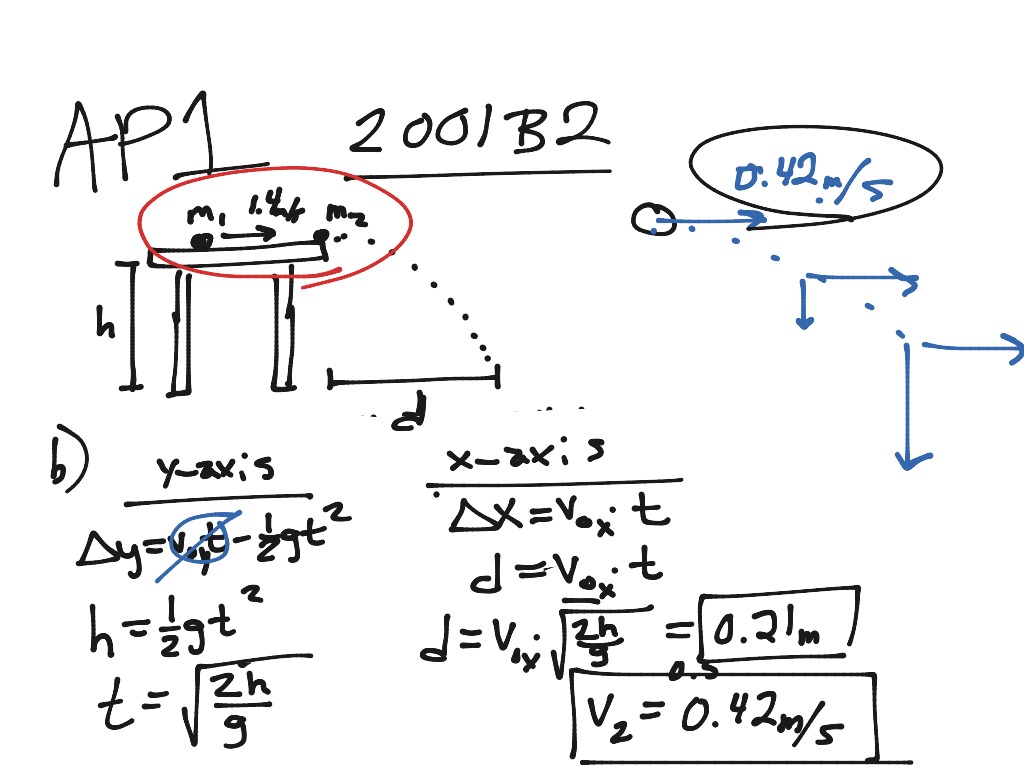 AP1 2001B2
m₁ 1.4m/s m₂
0.42m/s
h
d
b)
y-axis
Δy = v₀ᵧt - ½gt²
h = ½gt²
t = √(2h/g)
x-axis
Δx = v₀ₓ t
d = v₀ₓ t
d = v₀ₓ √(2h/g) = 0.21m
0.5
v₂ = 0.42m/s